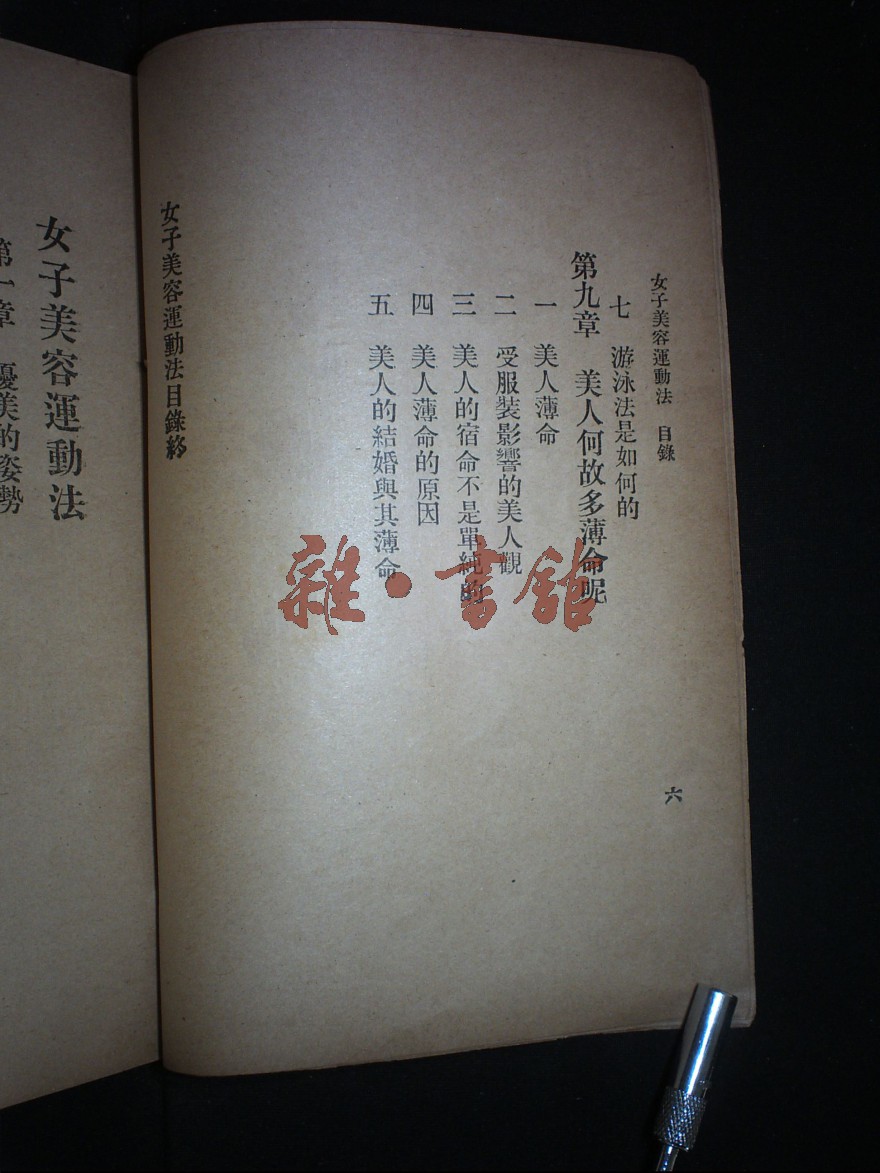 女子美容運動法　目錄
七　游泳法是如何的
第九章　美人何故多薄命呢
一　美人薄命
二　受服裝影響的美人觀
三　美人的宿命不是單純的
四　美人薄命的原因
五　美人的結婚與其薄命
女子美容運動法目錄終
六
女子美容運動法
第一章　優美的姿勢
雜·書館